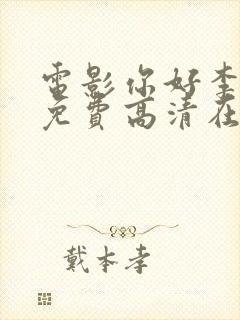 电影你好李
免费高清在
戴本孝